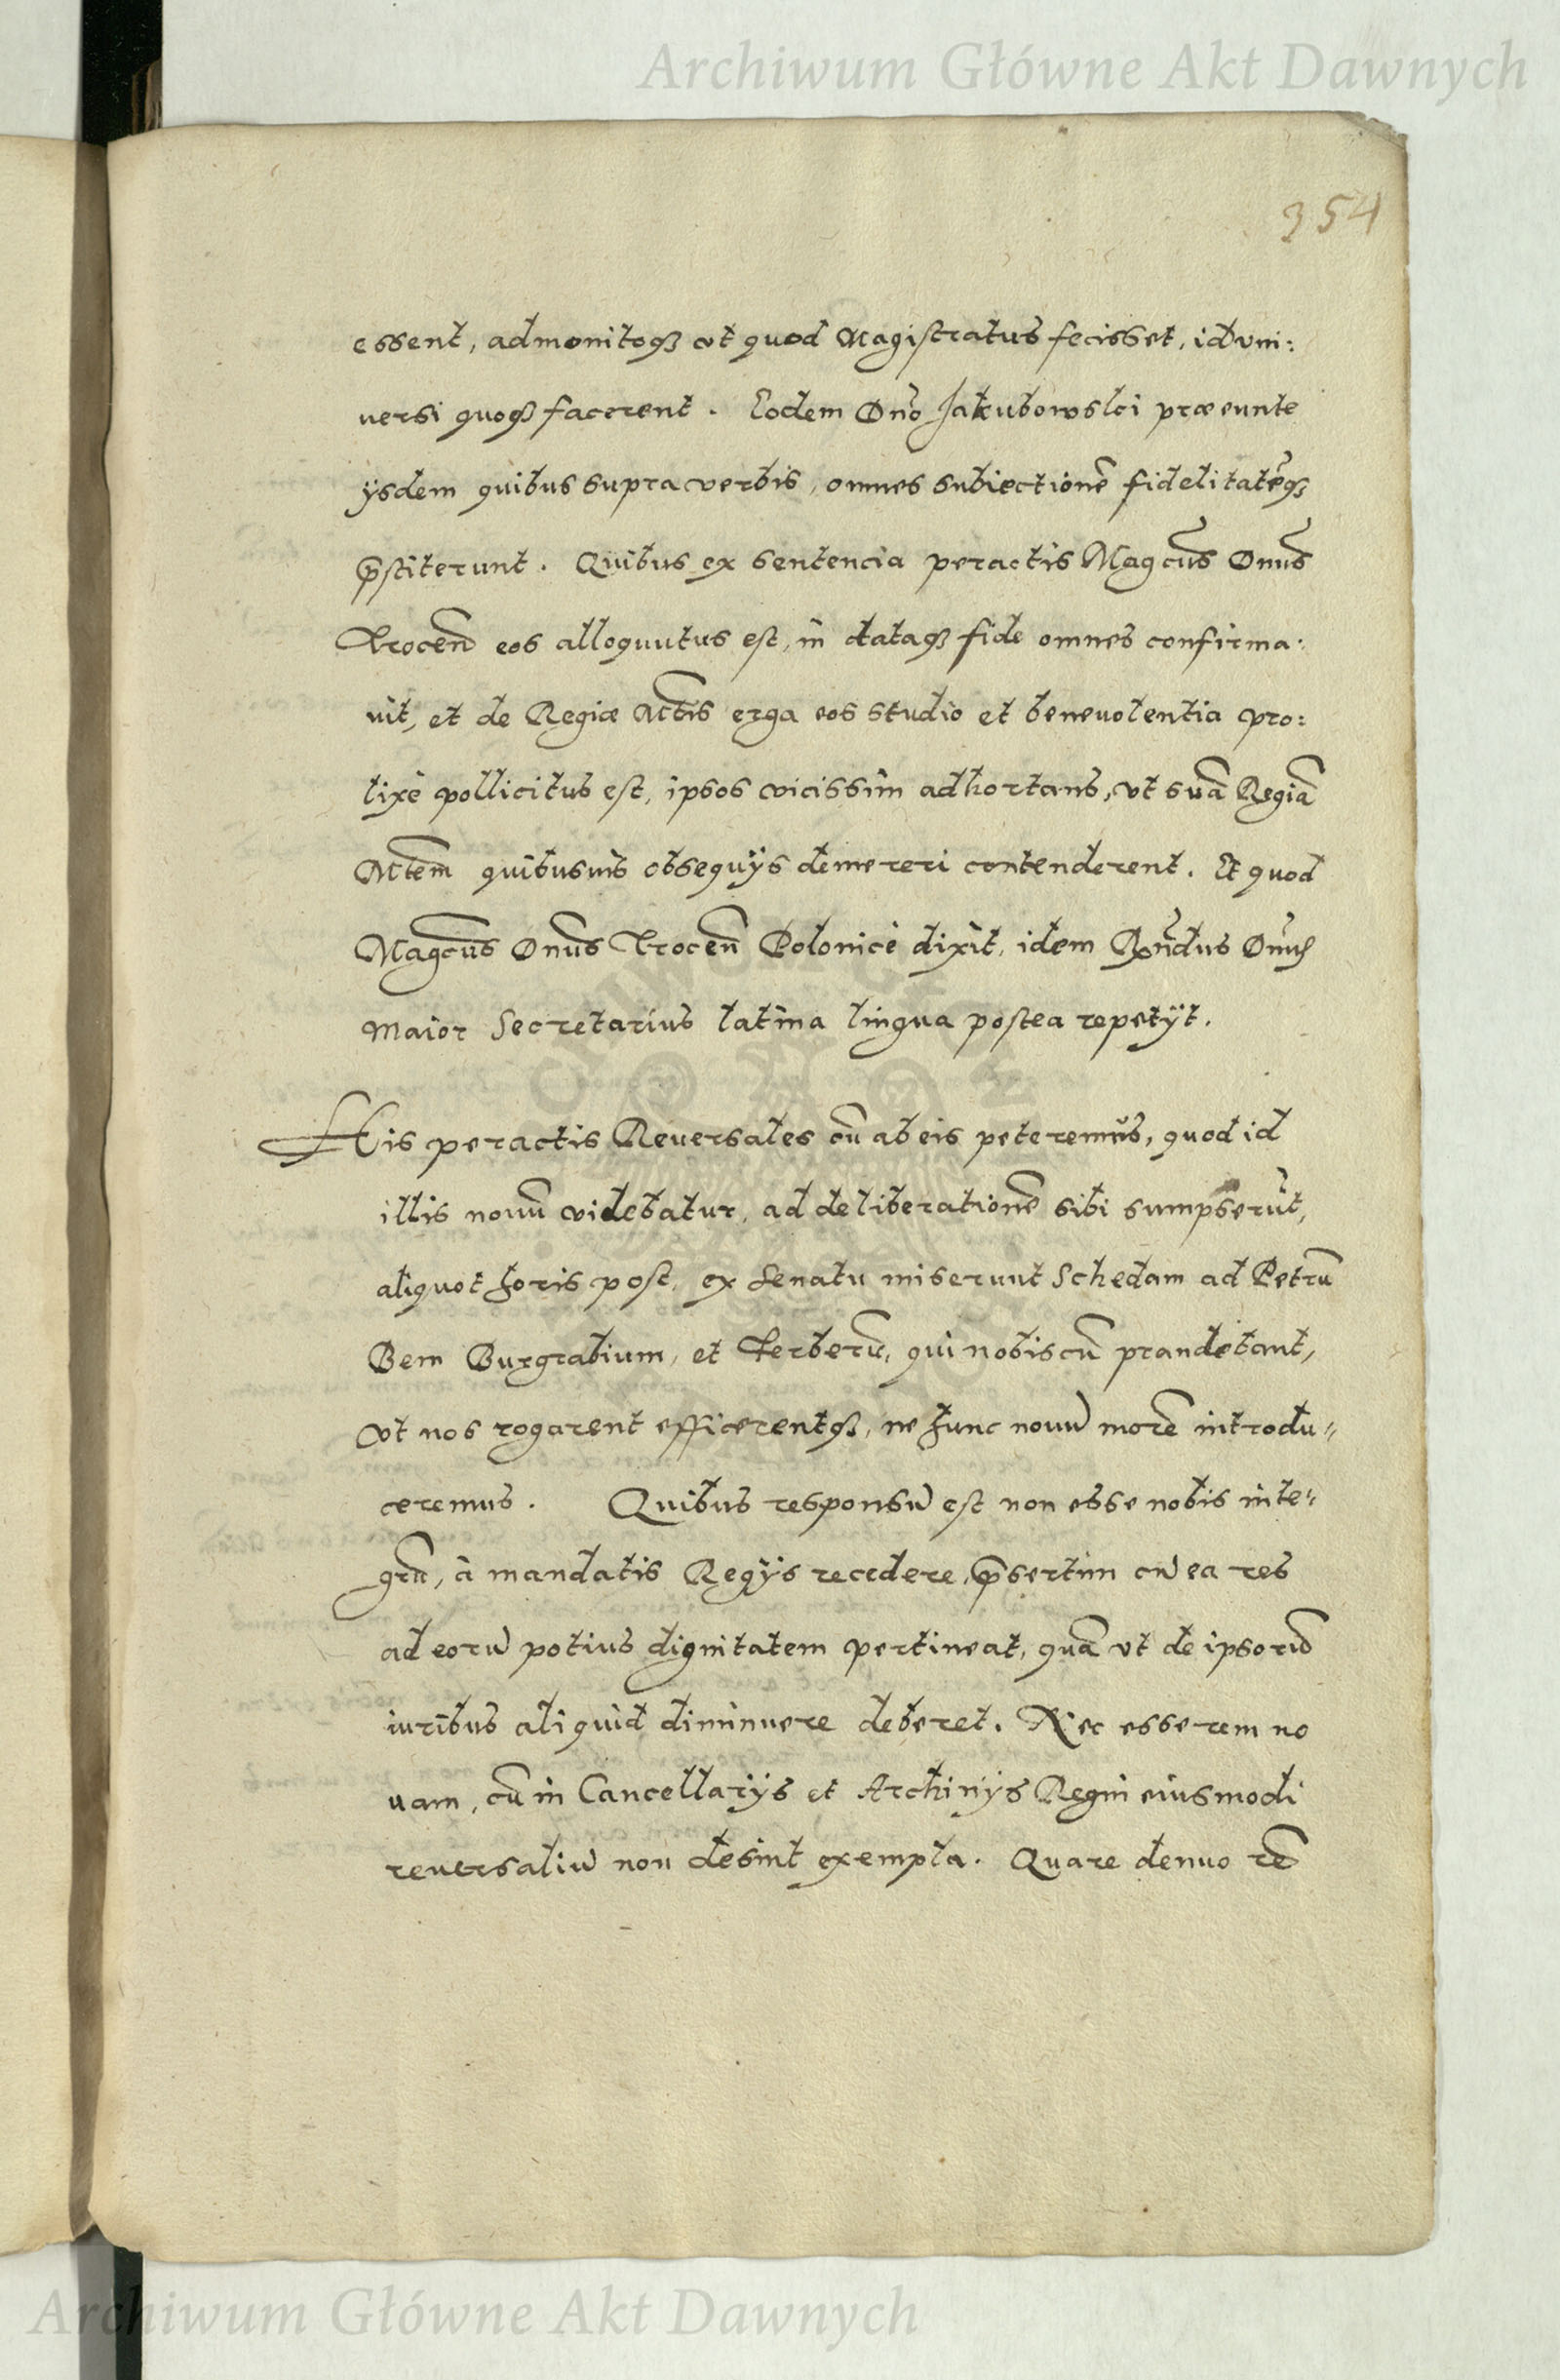 Archiwum Główne Akt Dawnych
354
essent, admonitosq₃ vt quod Magistratus fecisset, id vni:
versi quoq₃ facerent. Eodem Dn̄o Jakubowski præeunte
ijsdem quibus supra verbis, omnes subiectionē fidelitatēq₃
p̄stiterunt. Quibus ex sentencia peractis Magcūs Dnūs
Trocen̄ eos alloquutus est, in dataq₃ fide omnes confirma:
uit, et de Regiæ Mtis erga eos studio et beneuolentia pro:
lixè pollicitus est, ipsos vicissim adhortans, vt suā Regiā
Mtem quibusuis obsequijs demereri contenderent. Et quod
Magcūs Dnūs Trocen̄ Polonicè dixit, idem Rn̄dus Dnūs
Maior Secretarius latina lingua postea repetijt.
His peractis Reuersales cū ab eis peteremus, quod id
illis nouū videbatur, ad deliberationē sibi sumpserūt,
aliquot horis post, ex Senatu miserunt Schedam ad Petrū
Bem Burgrabium, et Ferberū, qui nobiscū prandebant,
vt nos rogarent efficerentq₃, ne hunc nouū morē introdu„
ceremus. Quibus responsū est non esse nobis inte„
grū, à mandatis Regijs recedere, p̄sertim cū ea res
ad eorū potius dignitatem pertineat, quā vt de ipsorū
iuribus aliquid diminuere deberet. Nec esse rem no
uam, cū in Cancellarijs et Archiuijs Regni eiusmodi
reuersaliū non desint exempla. Quare denuo rē
Archiwum Główne Akt Dawnych